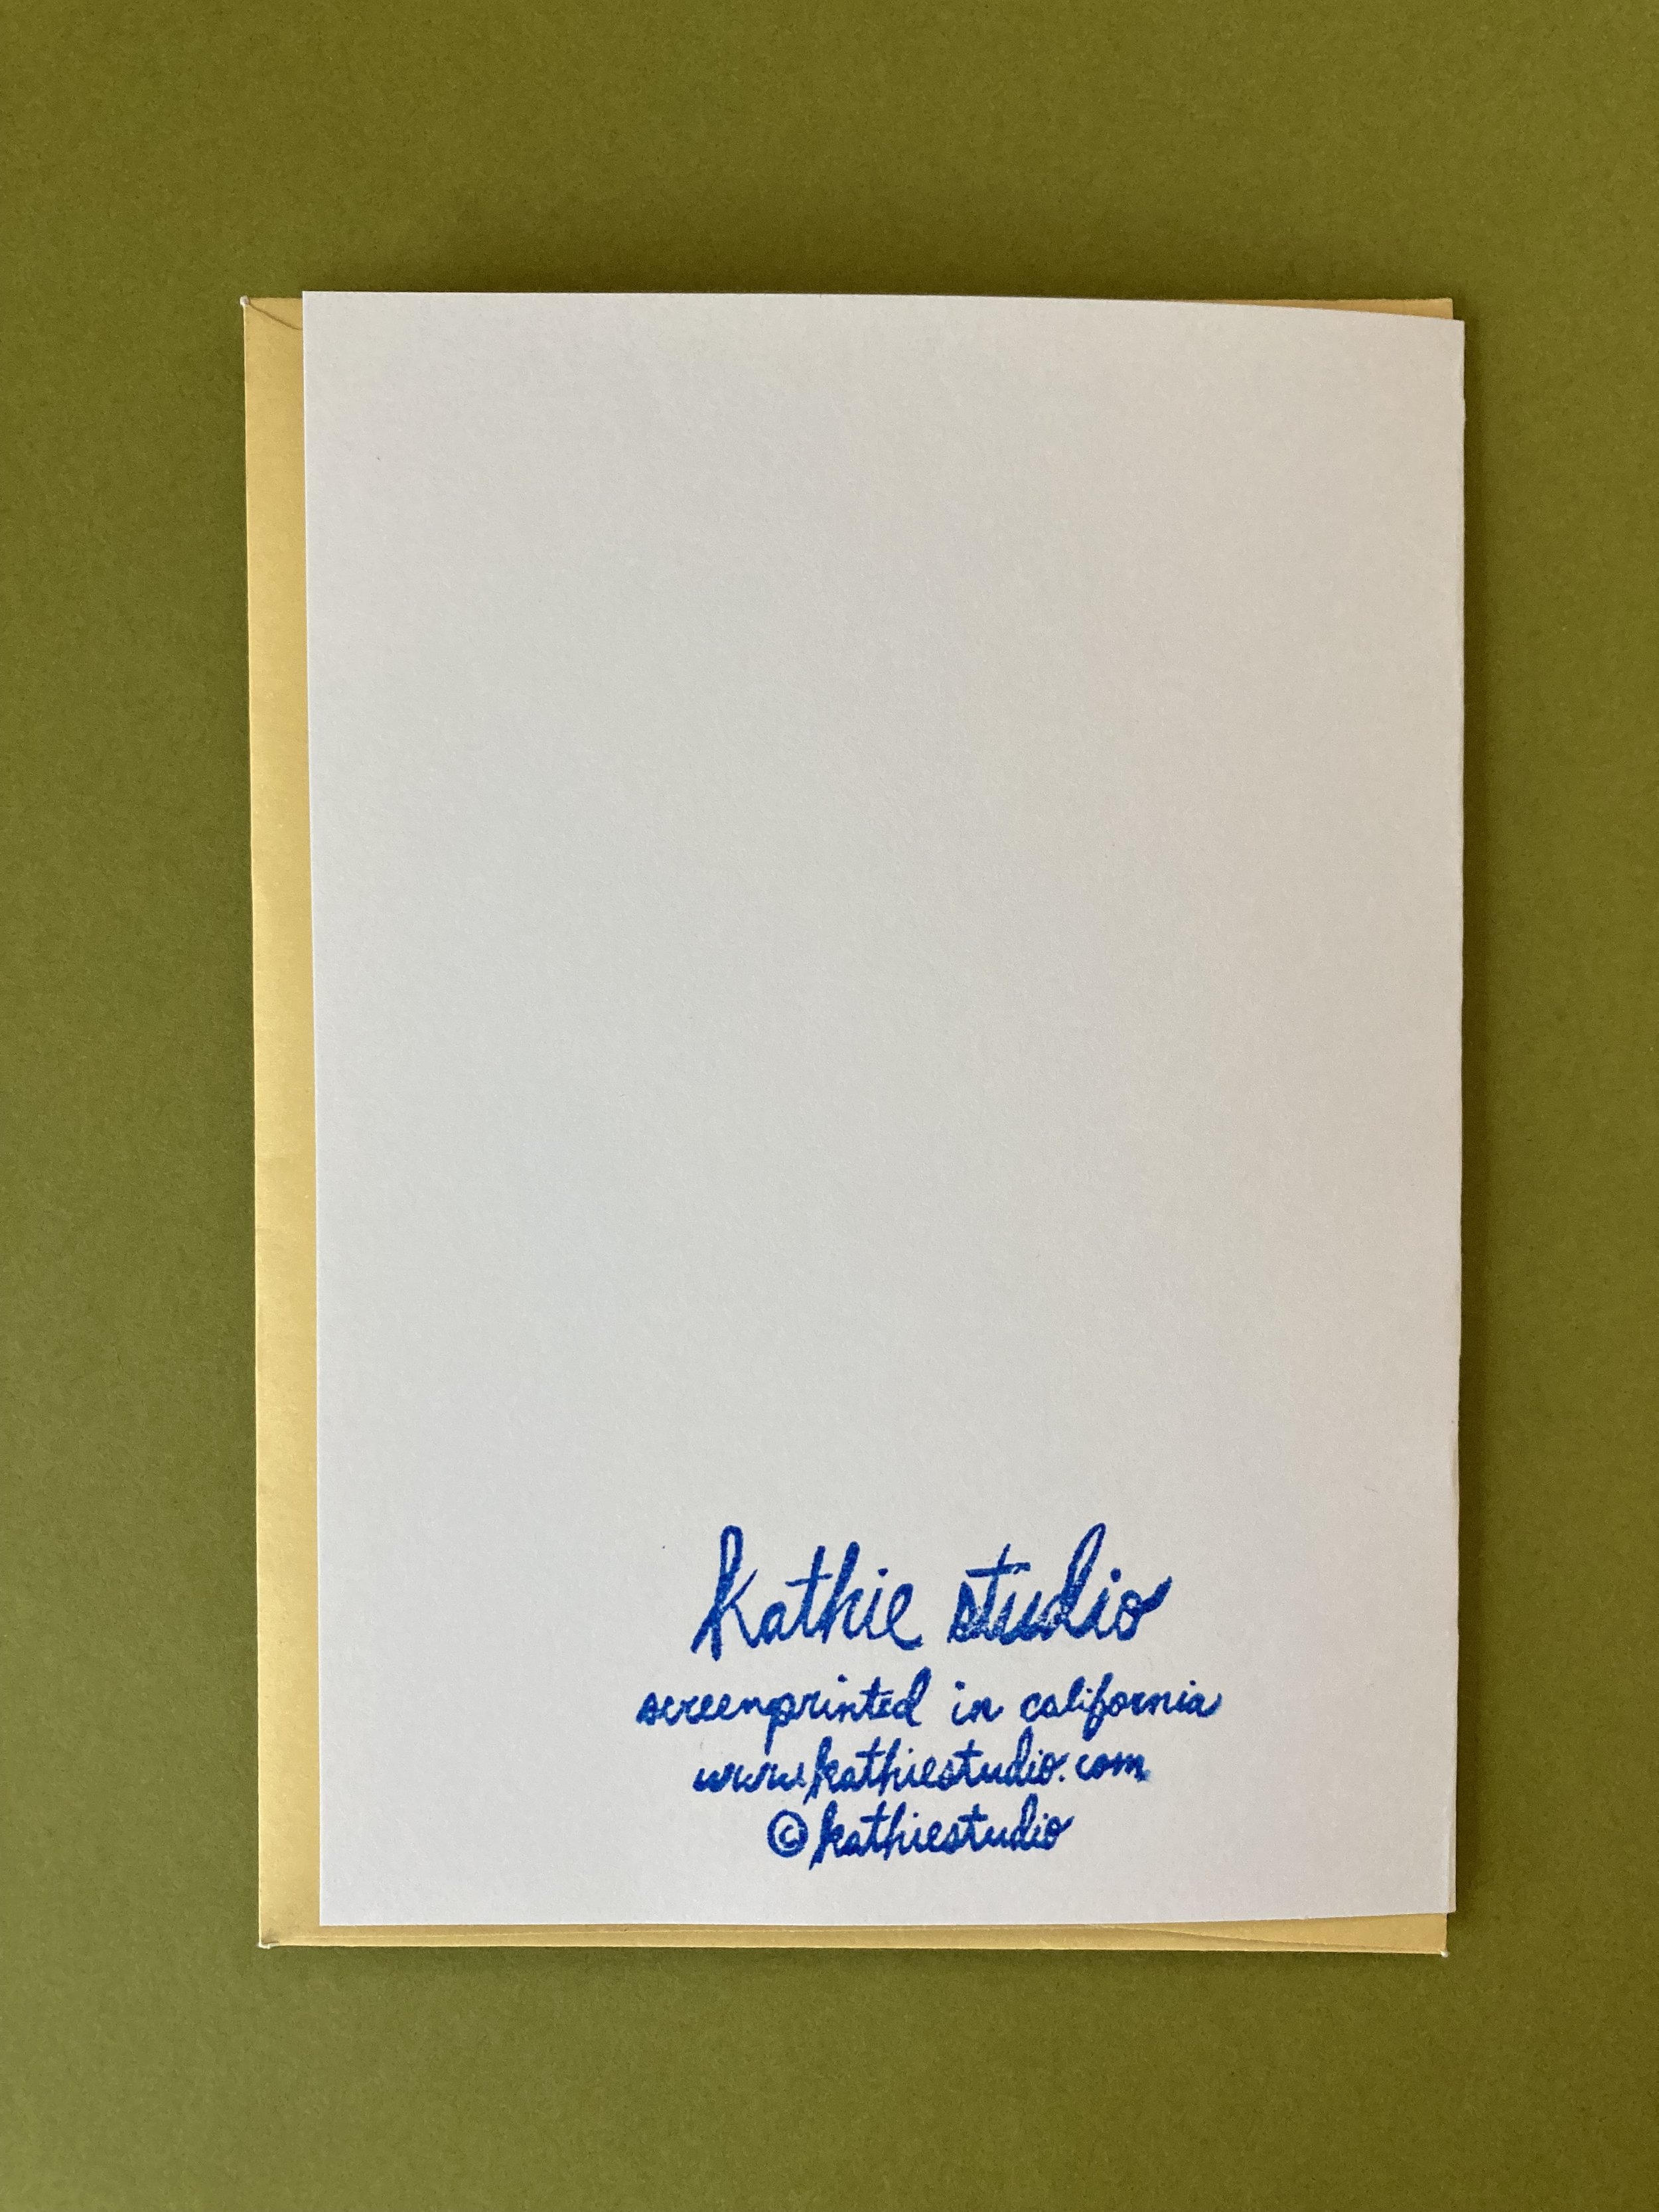 kathie studio
screenprinted in california
www.kathiestudio.com
©kathiestudio